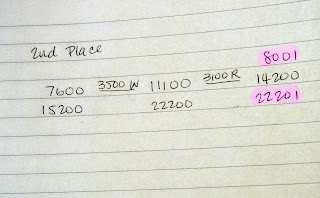 2nd Place
8001
7600 3500 W 11100 3100 R 14200
15200 22200 22201